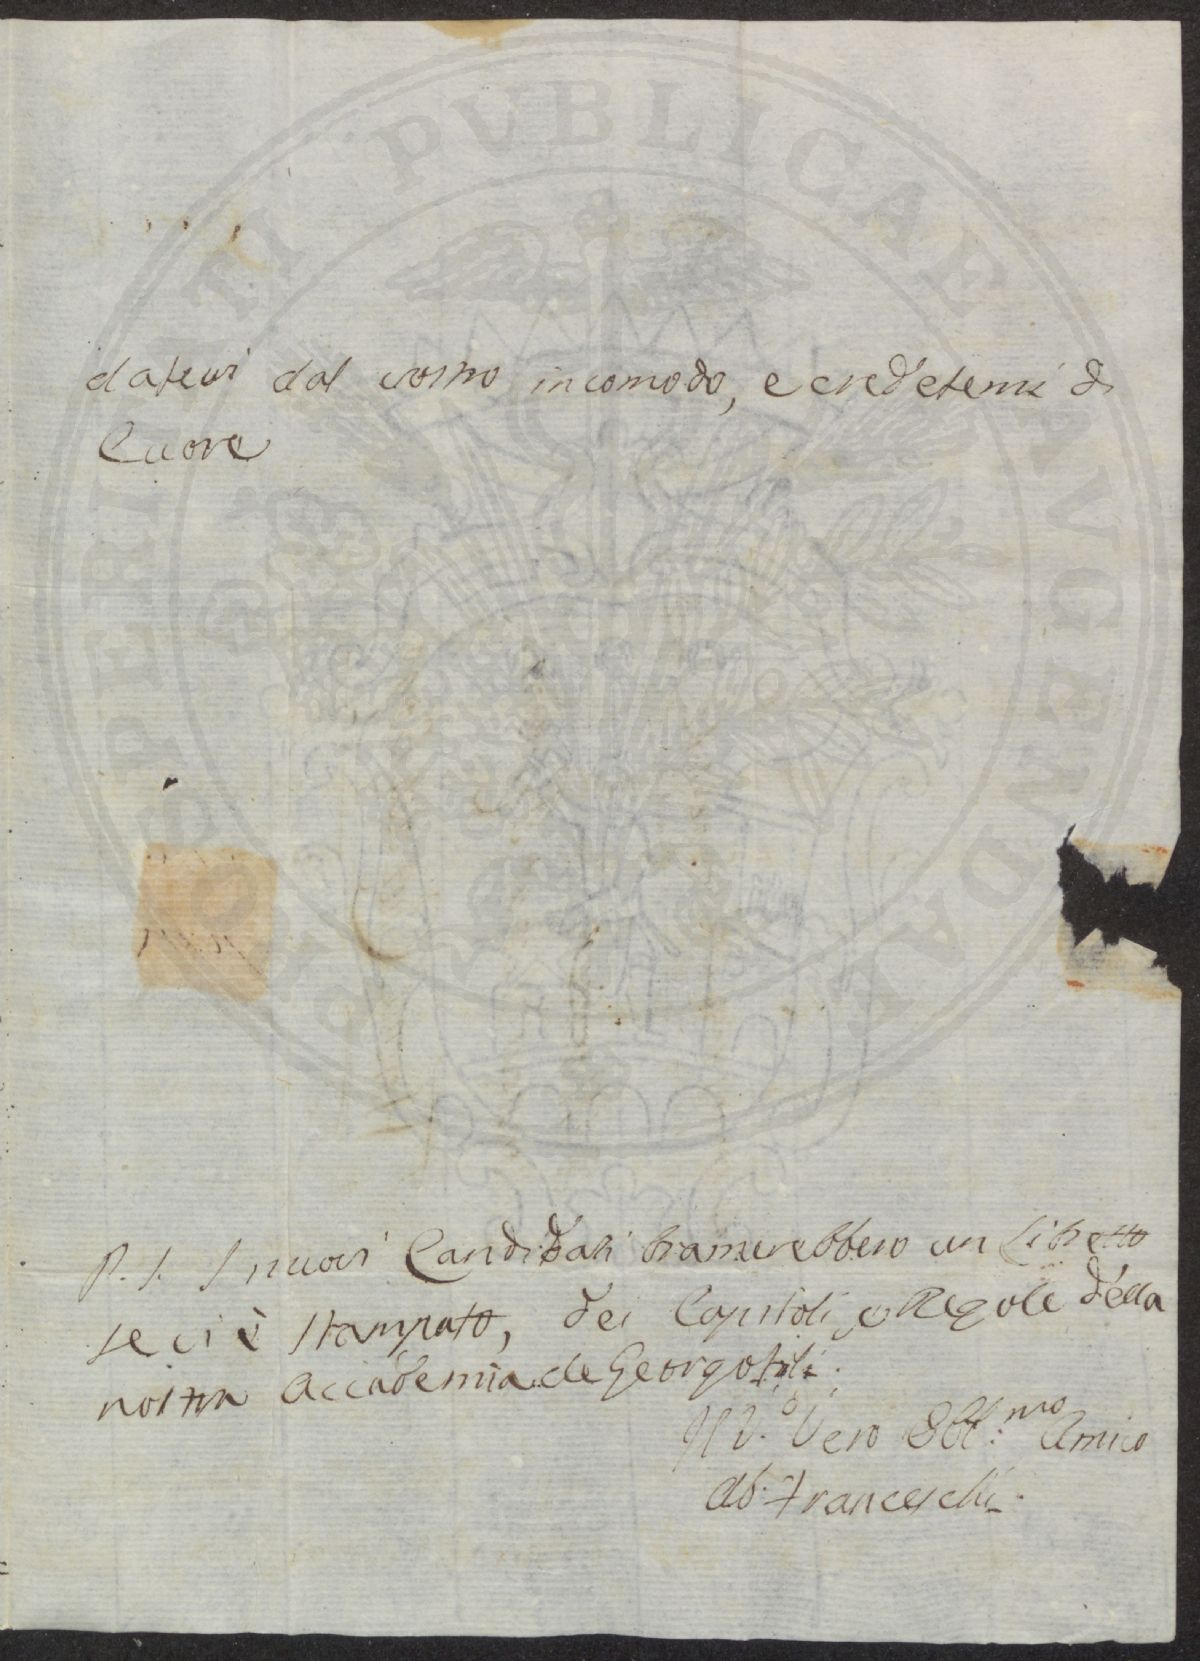 PROSPERITATI PUBLICAE AVGENDAE
datevi dal vostro incomodo, e credetemi di
Cuore
P. S. I nuovi Candidati bramerebbero un Libretto
se ci è stampato, dei Capitoli, e Regole della
nostra Accademia de Georgofili.
Il V.º Vero Obb.mo Amico
Ab. Franceschi.